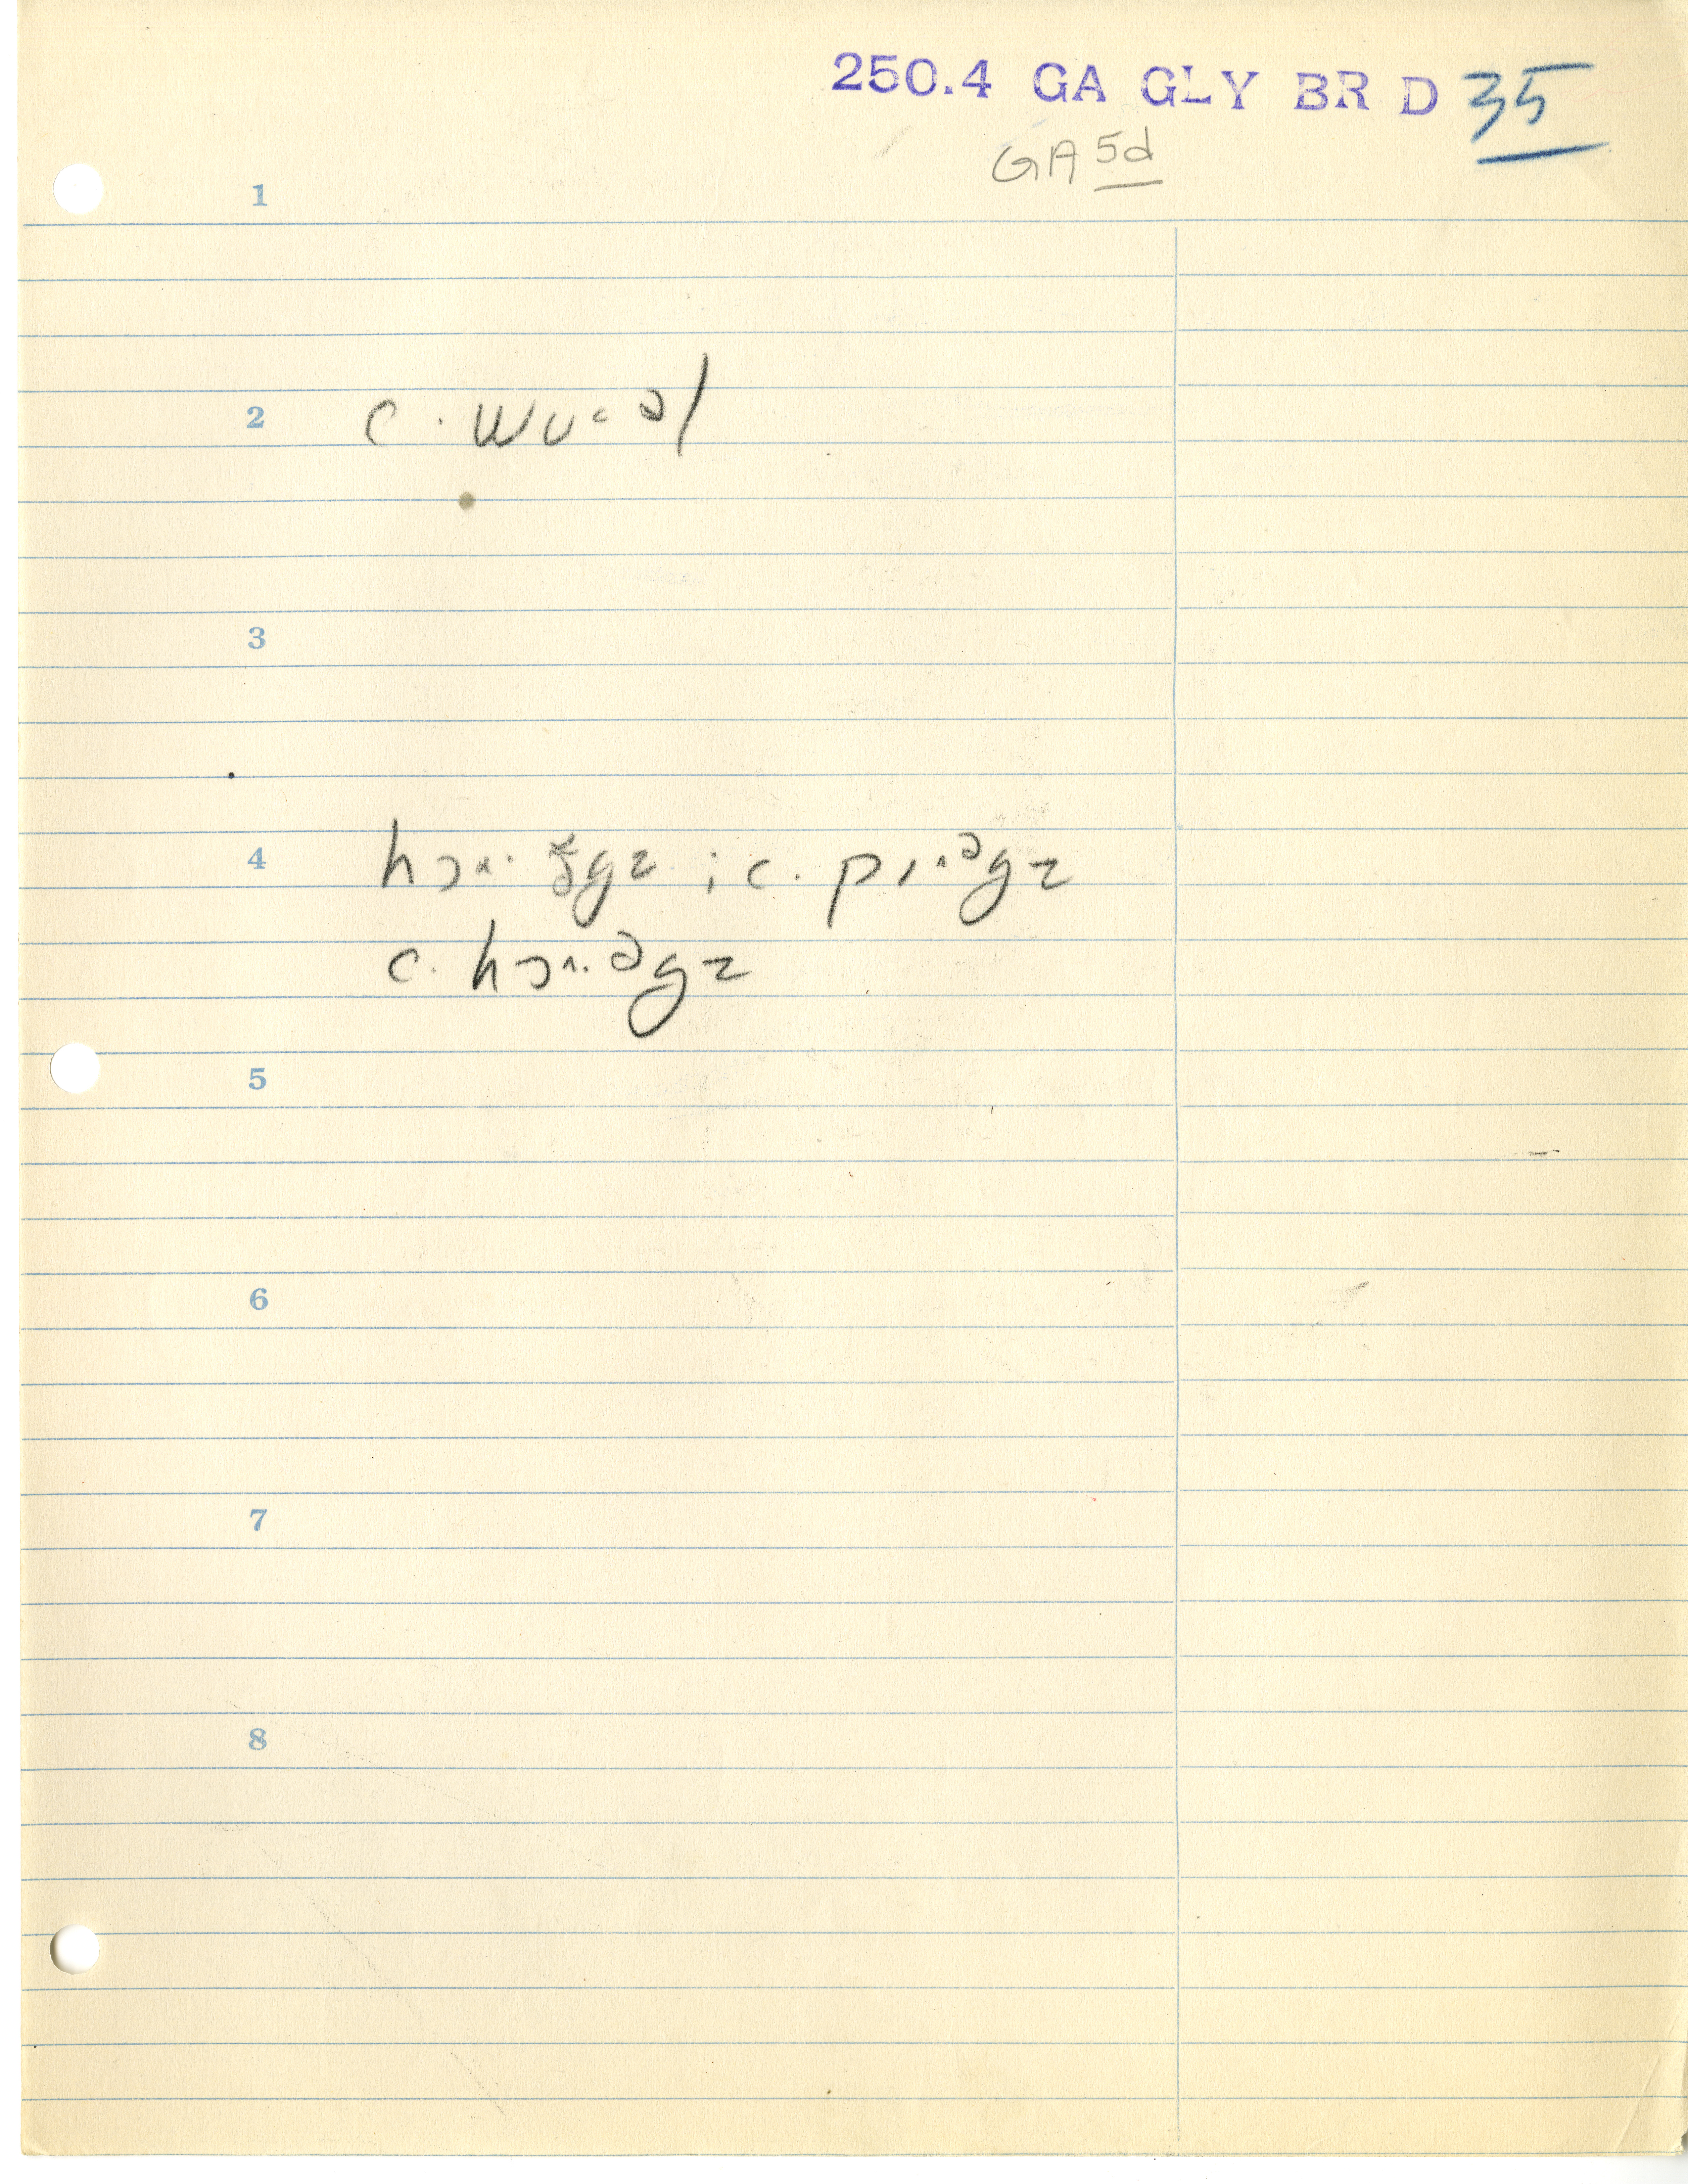 250.4 GA GLY BR D 35
GA 5d
1
2 c. wʊ˂əl
3
4 hɔ˄·ə̆gz ; c. pɪ˄·əgz
c. hɔ˄·əgz
5
6
7
8